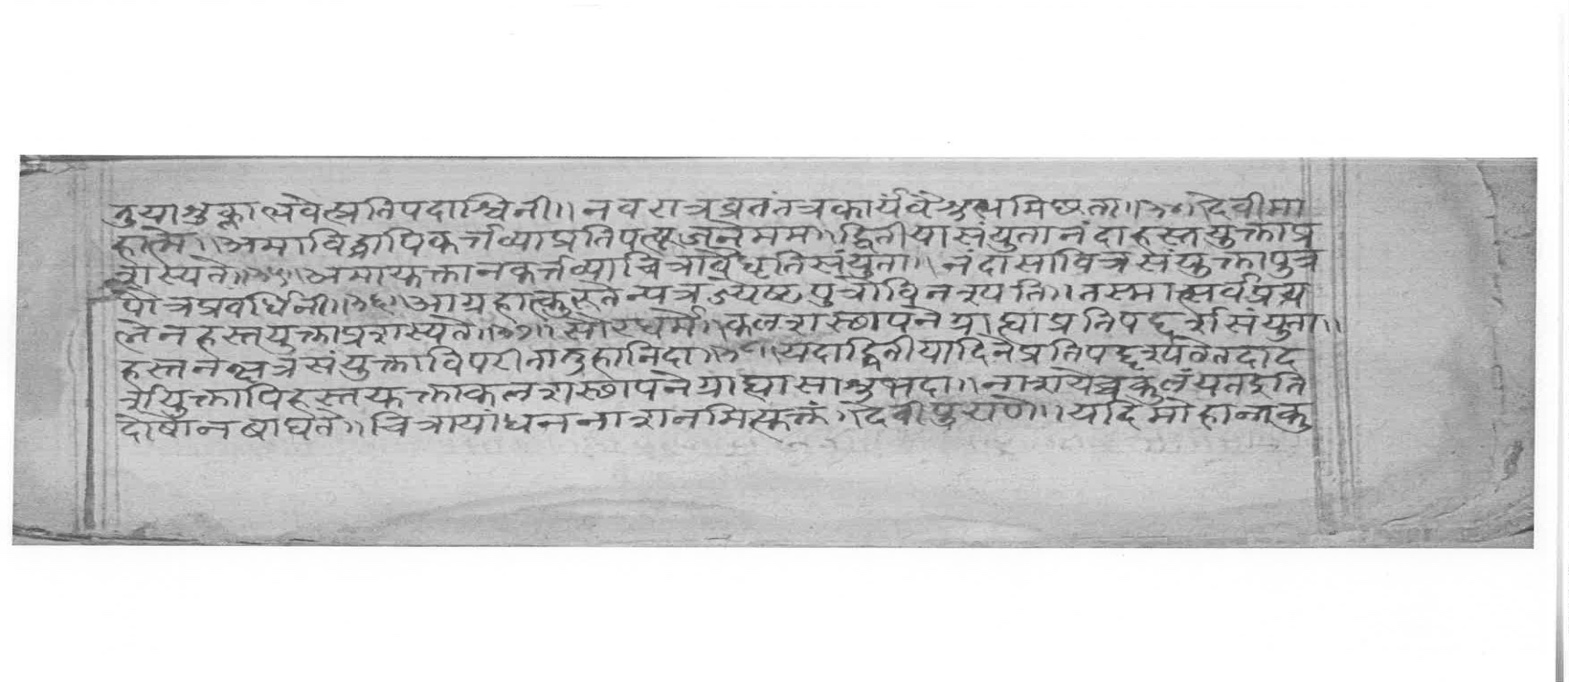 तुयाशुक्लाभवेत्प्रतिपदाश्विनी॥नवरात्रव्रतंतत्रकार्यंवंशुभमिछता॥७०॥देवीमा
हात्मे॥अमाविद्धापिकर्त्तव्याप्रतिपत्पूजनेमम॥द्वितीयासंयुतानंदाहस्तयुक्ताप्र
शस्यते॥अमायुक्तानकर्त्तव्याचित्रावैधृतिसंयुता॥नंदासावित्रसंयुक्तापुत्र
पौत्रप्रवर्धिनी॥आग्रहात्कुरुतेन्यत्रज्येष्ठपुत्रोविनश्यति॥तस्मात्सर्वप्रय
त्नेनहस्तयुक्ताप्रशस्यते॥७७॥सौरधर्मे॥कलशस्छापनेग्राह्याप्रतिपद्दर्शसंयुता॥
हस्तनक्षत्रसंयुक्ताविपरीतातुहानिदा॥यदाद्वितीयादिनेप्रतिपद्दृश्यतेतदाद
र्शयुक्तापिहस्तयुक्ताकलशस्छापनेग्राह्यासाशुभदा॥नाशयेच्चकुलंयतइति
दोषोनबाधते॥चित्रायांधननाशनमित्युक्तं॥देवीपुराणे॥यदिमोहान्नरकु